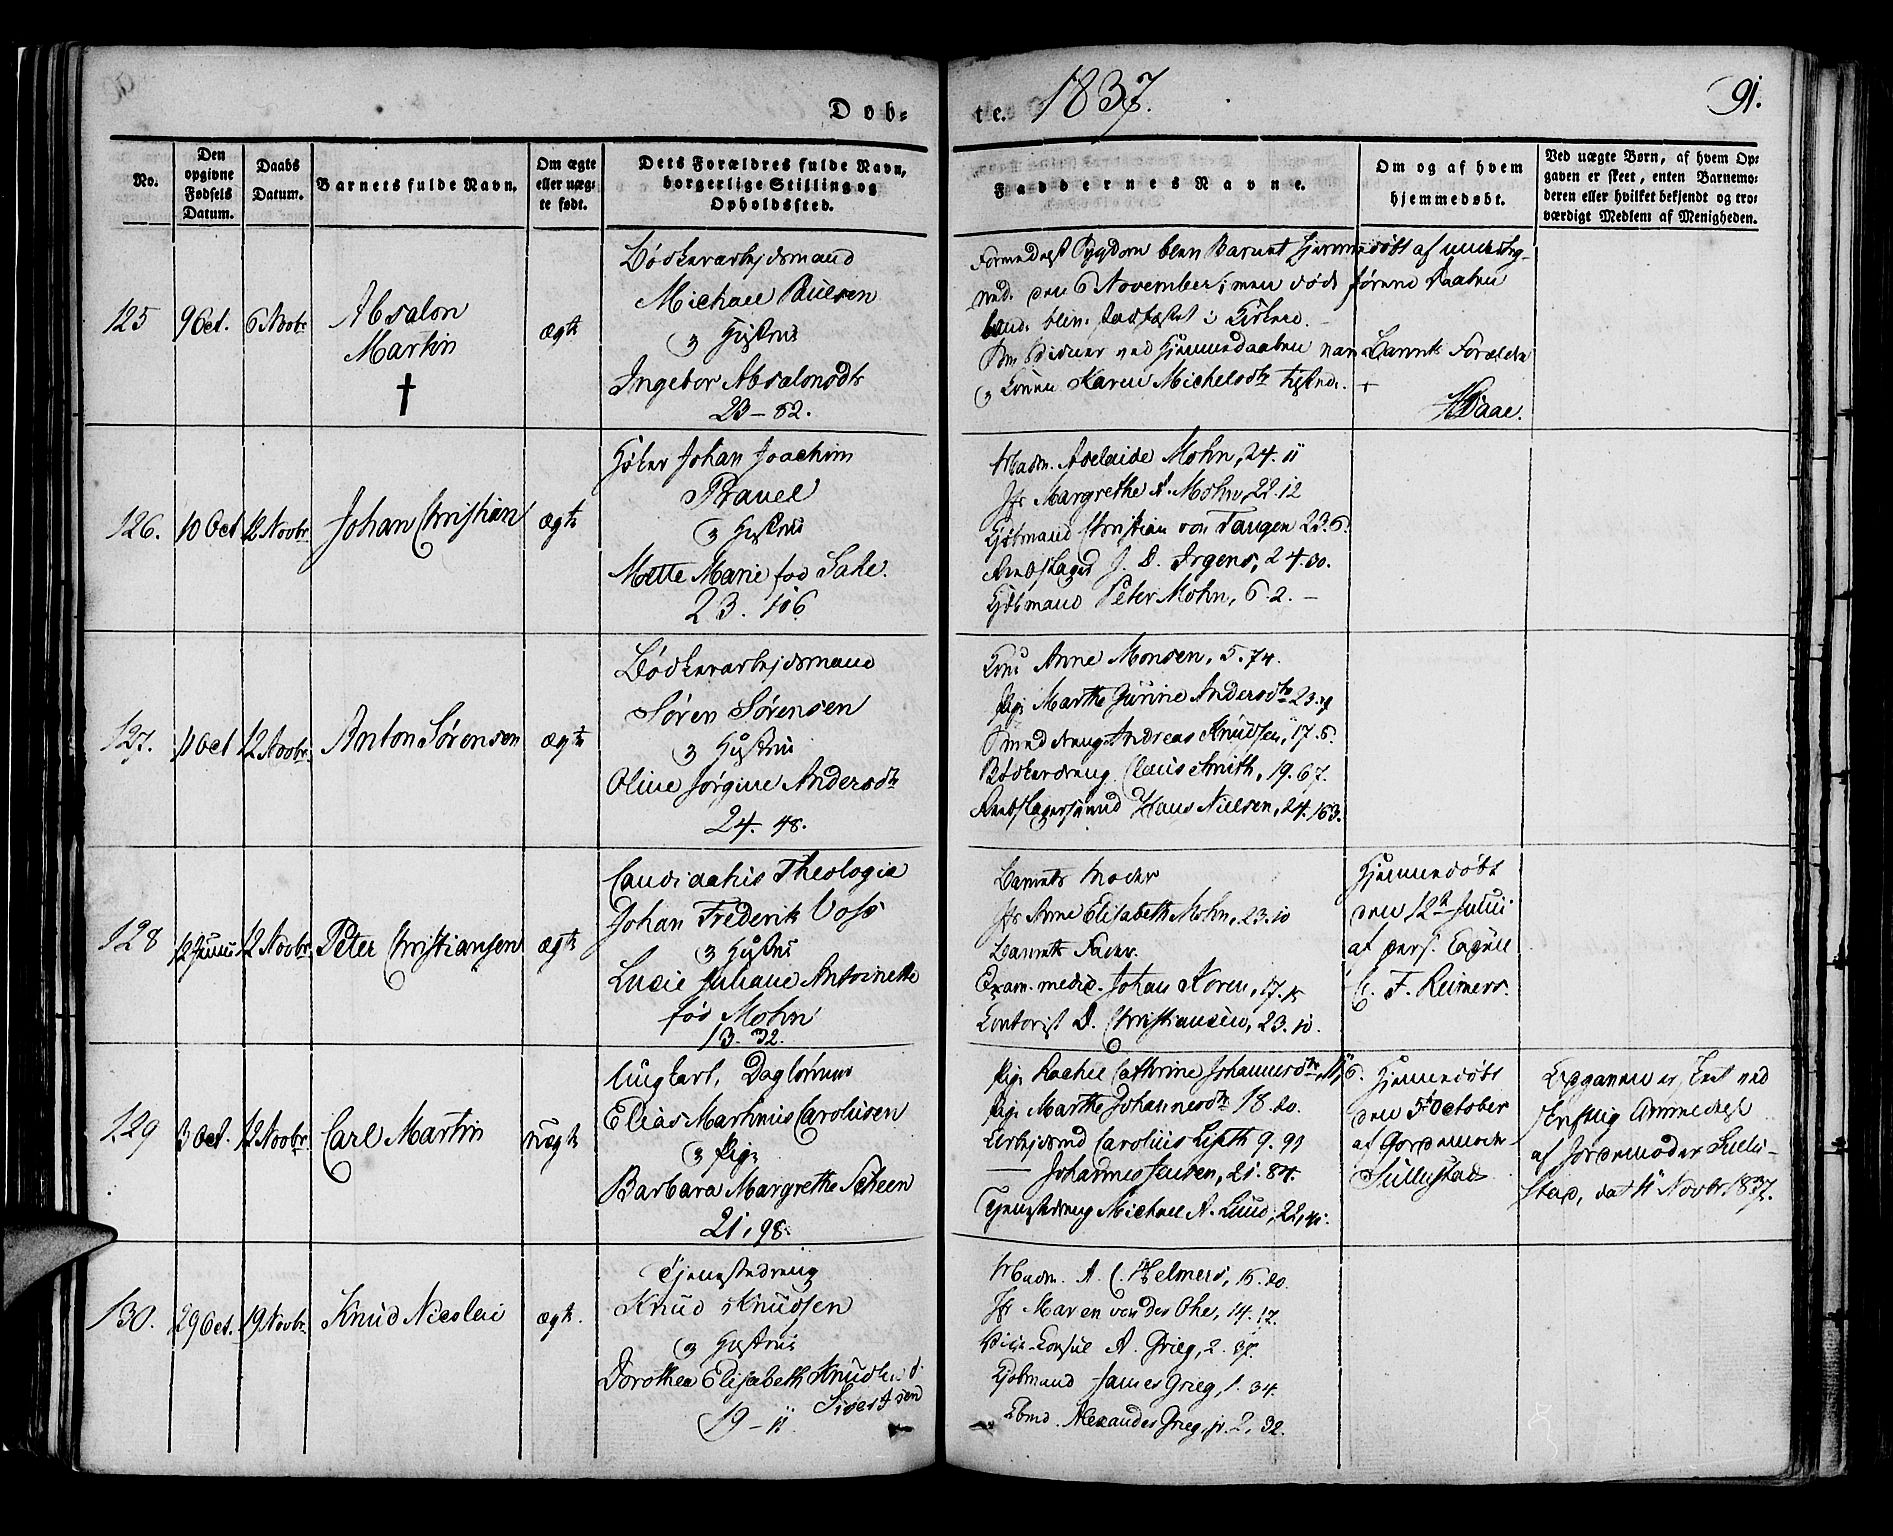 Døb-
te. 1837.
91.
No.
Den opgivne Fødsels Datum.
Daabs Datum.
Barnets fulde Navn.
Om ægte eller uæg-te født.
Dets Forældres fulde Navn, borgerlige Stilling og Opholdssted.
Faddernes Navne.
Om og af hvem hjemmedøbt.
Ved uægte Børn, af hvem Op-gaven er skeet, enten Barnemo-deren eller hvilket bekjendt og tro-værdigt Medlem af Menigheden.
125
9 Oct.
6 Novbr
Absalon
Martin
†
ægte
Bødkerarbejdsmand
Michael Paulsen
og Hustrue
Ingebor Absalonsdtr
23 - 82.
blev Barnet hjemmedøbt af
den 6 November, men døde førend Daaben
Barnets Forældre
Karen Michelsdtr
126.
10 Oct
12 Novbr.
Johan Christian
ægte
Høker Johan Joachim
og Hustrue
Mette Marie fød Sahe.
23. 106
Madm. Adelaide Mohn, 24. 11
Jfr Margrethe A. Mohn, 22. 12
Kjøbmand Christian von Tangen 23. 6.
J. D. Irgens, 24. 30.
Kjøbmand Peter Mohn, 6. 2. —
127.
11 Oct
12 Novbr.
Anton Sørensen
ægte
Bødkerarbejdsmand
Søren Sørensen
og Hustrue
Oline Jørgine Andersdtr
24. 48.
Kone Anne Monsen, 5. 74.
Pige Marthe Gurine Andersdtr 23.
Andreas Knudsen, 17. 6.
Bødkerdreng Claus Smith, 19. 67.
Hans Nielsen, 24. 163.
128
12 Juni
12 Novbr.
Peter Christiansen
ægte
Candidatus Theologie
Johan Frederik Voss
og Hustrue
Lucie Juliane Antoinette
fød Mohn
13. 32.
Barnets Moder
Jfr Anne Elisabeth Mohn, 23. 10
Barnets Fader.
Exam. medic. Johan Koren, 17. 15
Contorist D. Christiansen, 23. 10.
Hjemmedøbt
den 12te Julii
af pers. Capell
C. F. Reimers.
129
3 Oct.
12 Novbr
Carl Martin
uægte
Ungkarl, Daglønner
Elias Martinus Carolusen
og Pige
Barbara Margrethe Scheen
21, 98.
Pige Rachel Cathrine Johannesdtr, 11, 6.
Pige Marthe Johannesdtr 18. 20.
Arbejdsmd Carolus Lyth 9. 99
— Johannes Jensen, 21. 84.
Tjenestedreng Michael A. Lund, 22, 41.
Hjemmedøbt
den 5te October
af Jordemoder
Sullestad
Opgaven er skeet ved
skriftlig Anmeldelse
af Jordemoder Sulle-
stad, dat. 11 Novbr. 1837.
130.
29 Oct.
19 Novbr.
Knud Nicolai
ægte.
Tjenestedreng
Knud Knudsen
og Hustrue
Dorothea Elisabeth Knudsen d.
Sivertsen
19 - 11.
Madm. A. C. Helmers, 15. 20.
Jfr Maren von der Ohe, 14. 17.
Vice-Consul A. Grieg, 2. 31.
Kjøbmand James Grieg, 1. 34.
Kbmd. Alexander Grieg, jr. 2, 32.